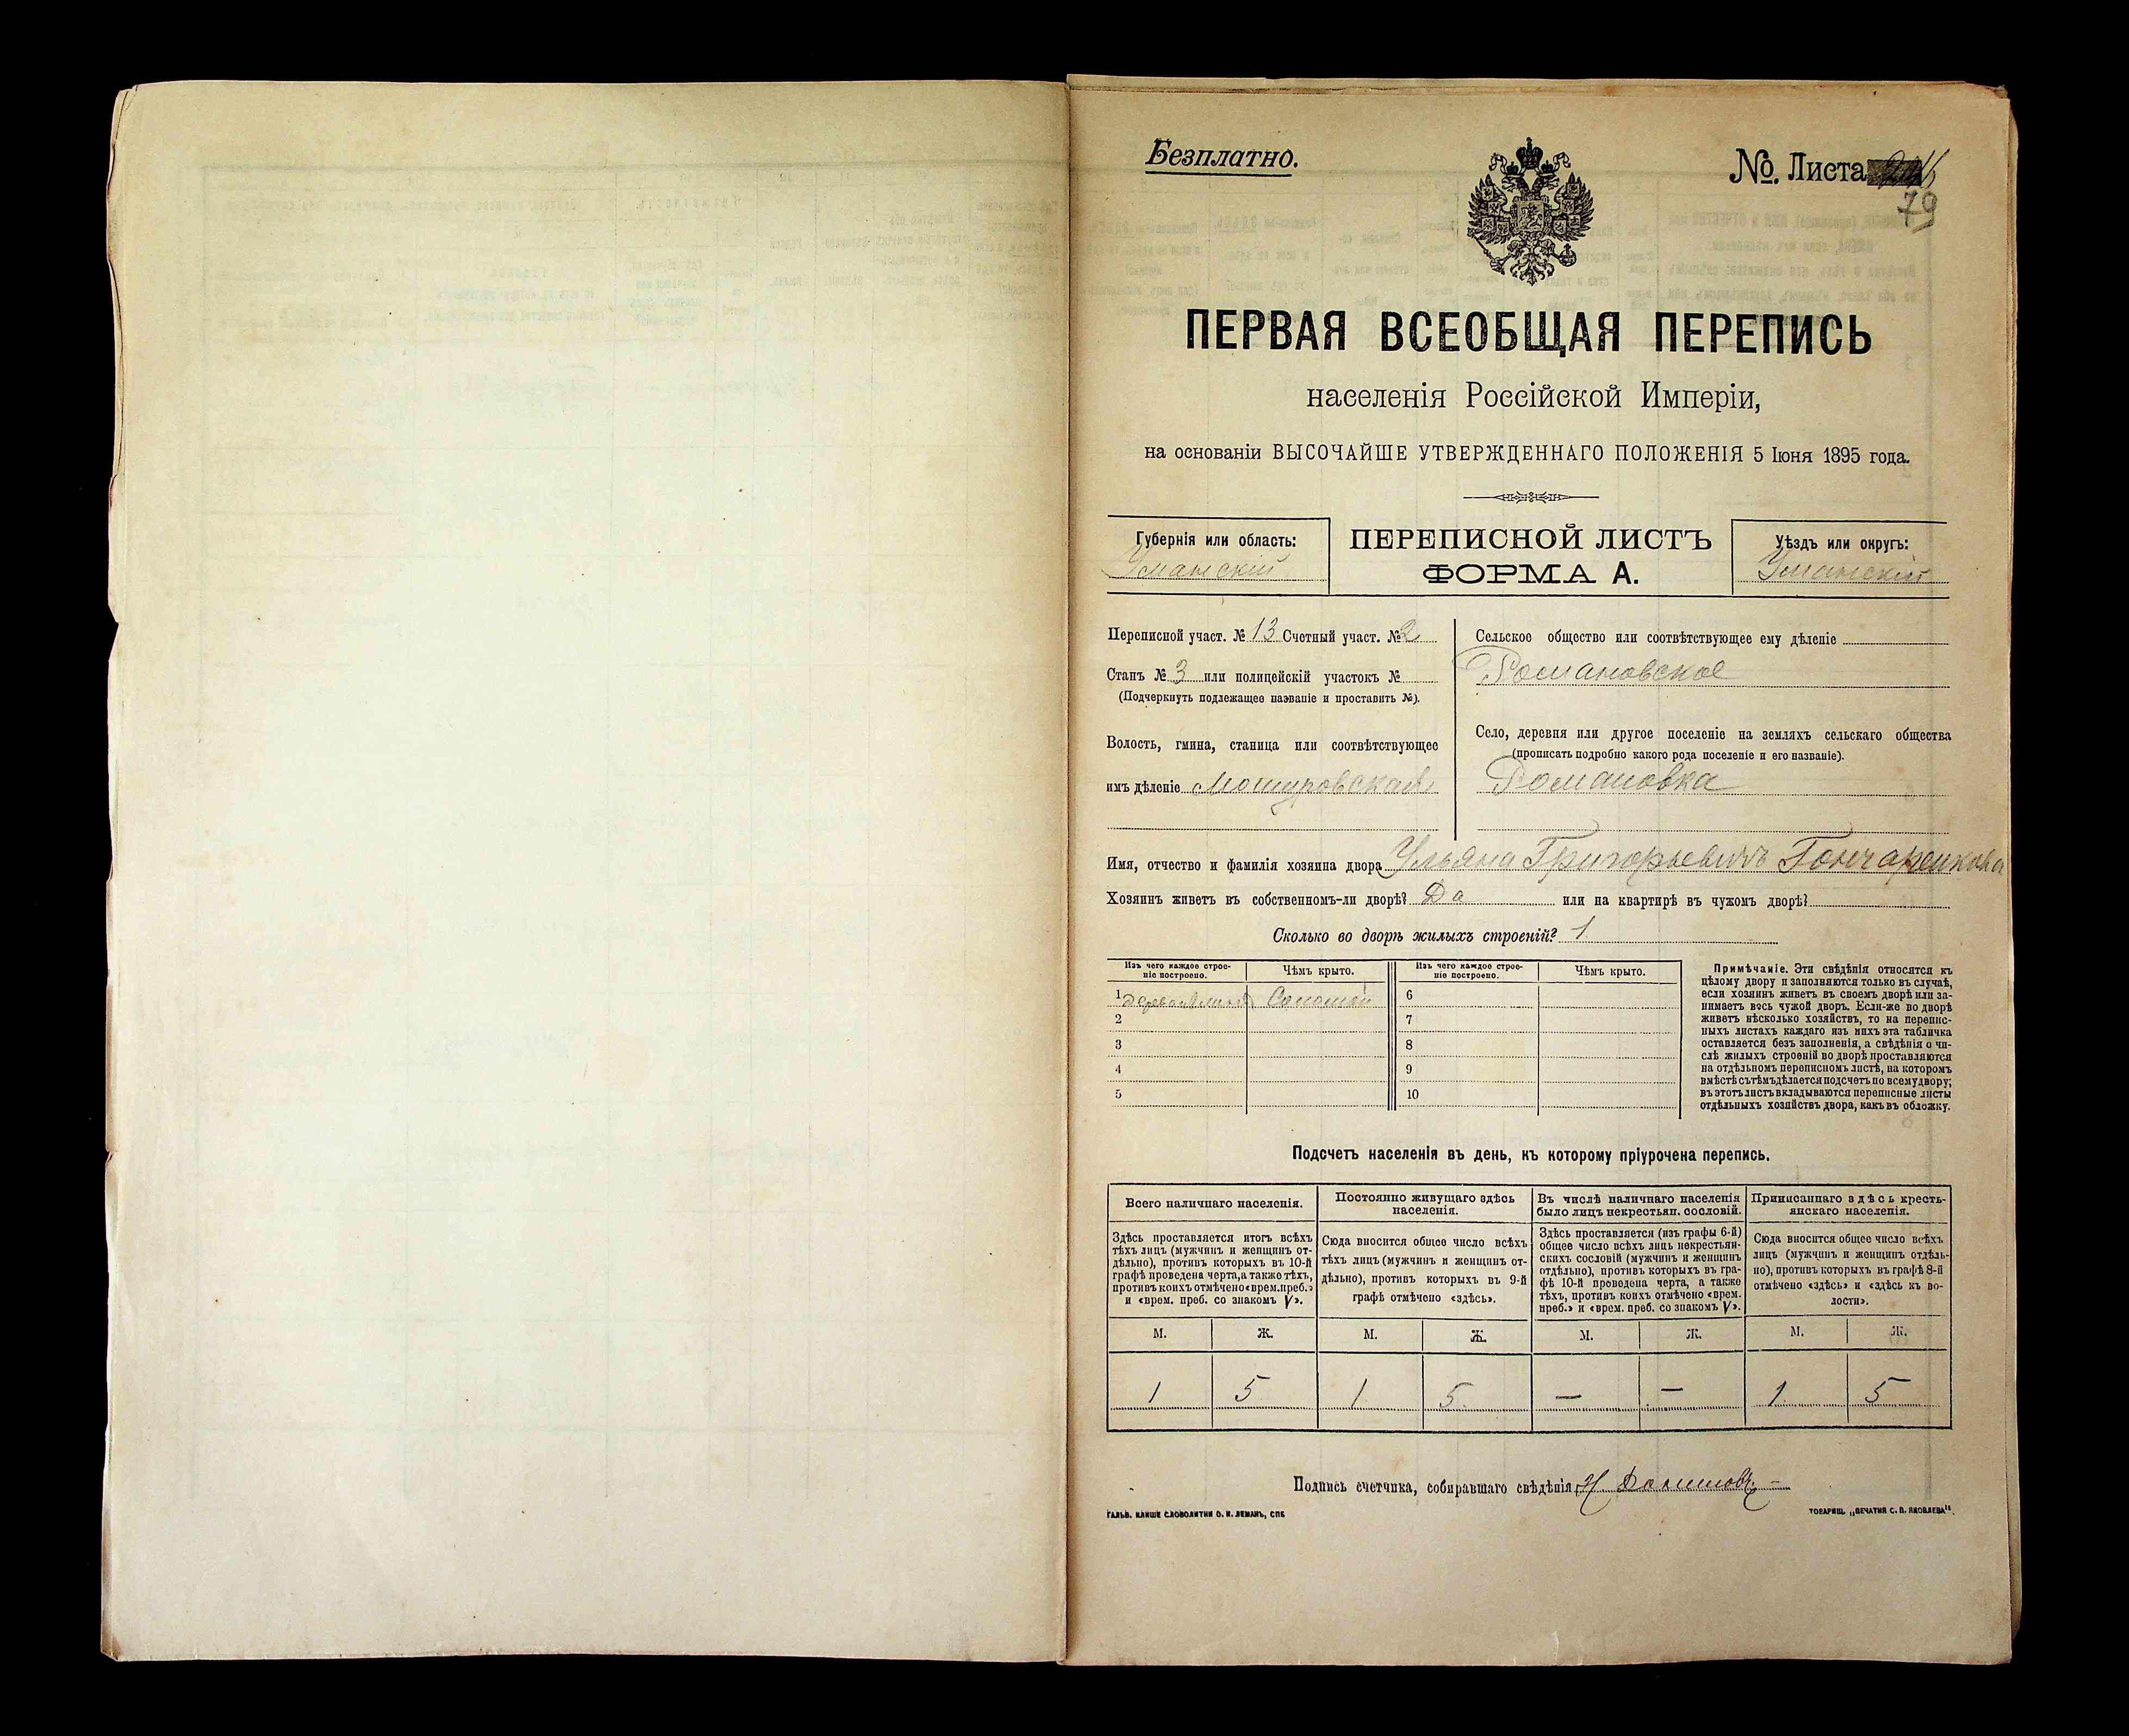 Безплатно.
№. Листа
79
ПЕРВАЯ ВСЕОБЩАЯ ПЕРЕПИСЬ
населенія Россійской Имперіи,
на основаніи ВЫСОЧАЙШЕ УТВЕРЖДЕННАГО ПОЛОЖЕНІЯ 5 Іюня 1895 года.
Губернія или область:
Уманскій
ПЕРЕПИСНОЙ ЛИСТЪ
ФОРМА А.
Уѣздъ или округъ:
Уманскій
Переписной участ. № 13 Счетный участ. № 2
Станъ № 3 или полицейскій участокъ №
(Подчеркнуть подлежащее названіе и проставить №).
Волость, гмина, станица или соотвѣтствующее
имъ дѣленіе Мошуровская
Сельское общество или соотвѣтствующее ему дѣленіе
Романовское
Село, деревня или другое поселеніе на земляхъ сельскаго общества
(прописать подробно какого рода поселеніе и его названіе).
Романовка
Имя, отчество и фамилія хозяина двора Ульяна Григорьевичъ Гончаренкова
Хозяинъ живетъ въ собственномъ-ли дворѣ? Да или на квартирѣ въ чужомъ дворѣ?
Сколько во дворѣ жилыхъ строеній? 1
Изъ чего каждое строе-
ніе построено.
Чѣмъ крыто.
Изъ чего каждое строе-
ніе построено.
Чѣмъ крыто.
1 Соломой 6
2 7
3 8
4 9
5 10
Примѣчаніе. Эти свѣдѣнія относятся къ
цѣлому двору и заполняются только въ случаѣ,
если хозяинъ живетъ въ своемъ дворѣ или за-
нимаетъ весь чужой дворъ. Если-же во дворѣ
живетъ нѣсколько хозяйствъ, то на перепис-
ныхъ листахъ каждаго изъ нихъ эта табличка
оставляется безъ заполненія, а свѣдѣнія о чи-
слѣ жилыхъ строеній во дворѣ проставляются
на отдѣльномъ переписномъ листѣ, на которомъ
вмѣстѣ съ тѣмъ дѣлается подсчетъ по всему двору;
въ этотъ листъ вкладываются переписные листы
отдѣльныхъ хозяйствъ двора, какъ въ обложку.
Подсчетъ населенія въ день, къ которому пріурочена перепись.
Всего наличнаго населенія.
Здѣсь проставляется итогъ всѣхъ
тѣхъ лицъ (мужчинъ и женщинъ от-
дѣльно), противъ которыхъ въ 10-й
графѣ проведена черта, а также тѣхъ,
противъ коихъ отмѣчено «врем. преб.»
и «врем. преб. со знакомъ V».
Постоянно живущаго здѣсь
населенія.
Сюда вносится общее число всѣхъ
тѣхъ лицъ (мужчинъ и женщинъ от-
дѣльно), противъ которыхъ въ 9-й
графѣ отмѣчено «здѣсь».
Въ числѣ наличнаго населенія
было лицъ некрестьян. сословій.
Здѣсь проставляется (изъ графы 6-й)
общее число всѣхъ лицъ некрестьян-
скихъ сословій (мужчинъ и женщинъ
отдѣльно), противъ которыхъ въ гра-
фѣ 10-й проведена черта, а также
тѣхъ, противъ коихъ отмѣчено «врем.
преб.» и «врем. преб. со знакомъ V».
Приписаннаго здѣсь кресть-
янскаго населенія.
Сюда вносится общее число всѣхъ
лицъ (мужчинъ и женщинъ отдѣль-
но), противъ которыхъ въ графѣ 8-й
отмѣчено «здѣсь» и «здѣсь къ во-
лости».
М. Ж. М. Ж. М. Ж. М. Ж.
1 5 1 5 — — 1 5
Подпись счетчика, собиравшаго свѣдѣнія
ГАЛЬВ. КЛИШЕ СЛОВОЛИТНИ О. И. ЛЕМАНЪ, СПБ
ТОВАРИЩ. „ПЕЧАТНЯ С. П. ЯКОВЛЕВА".